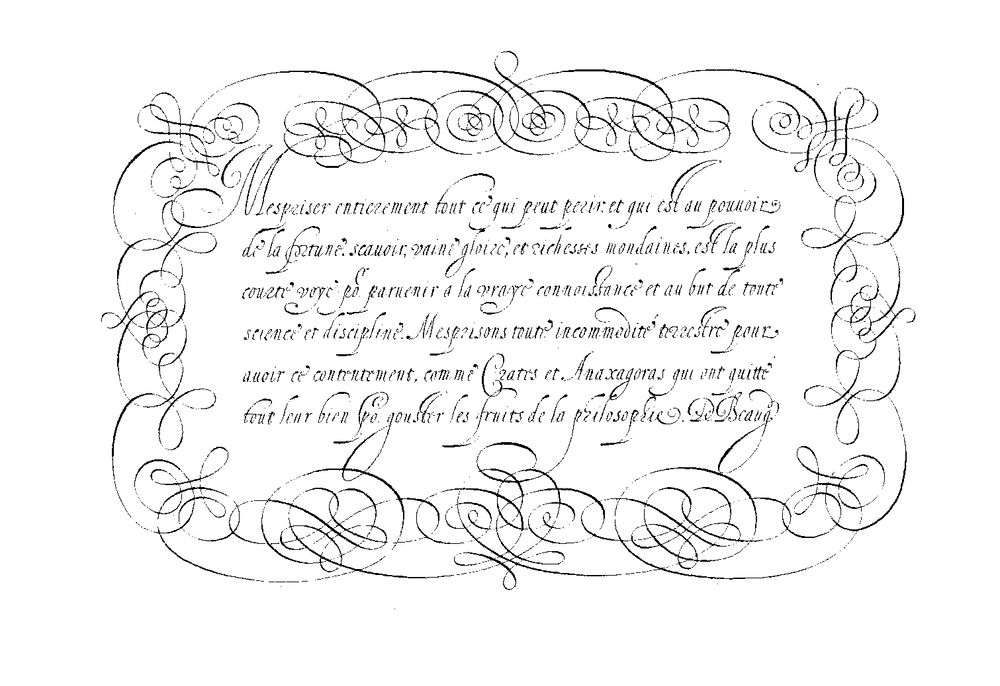 Mespriser entierement tout ce qui peut perir et qui est au pouuoir
de la fortune. scauoir, vaine gloire, et richesses mondaines, est la plus
courte voye po.r paruenir a la vraye connoissance et au but de toute
science et discipline. Mesprisons toute incommodité terrestre pour
auoir ce contentement, comme Crates et Anaxagoras qui ont quitté
tout leur bien po.r gouster les fruits de la philosophie. De Beaug.